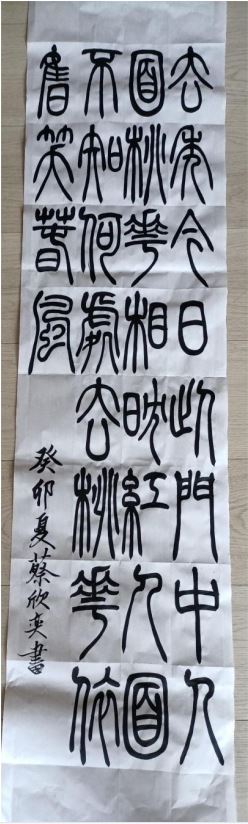 去年今日此門中人
面桃花相映紅人面
不知何處去桃花依
舊笑春風
癸卯夏蔡欣英書